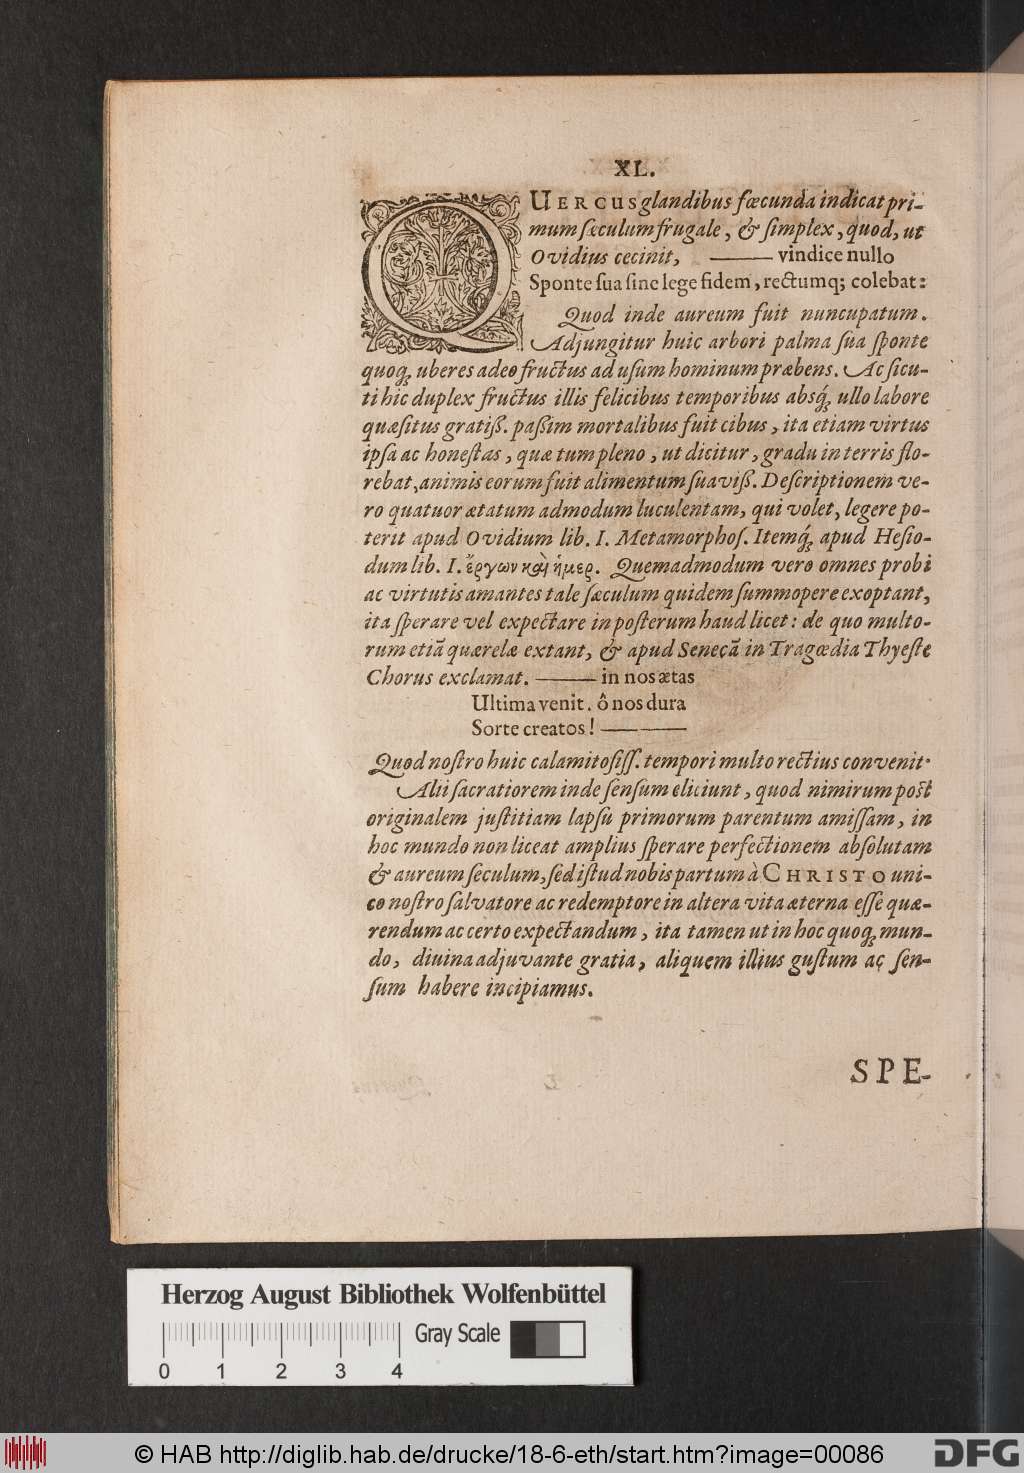 XL.
QUERCUS glandibus fœcunda indicat pri-
mum sæculum frugale, & simplex, quod, ut
Ovidius cecinit, ——— vindice nullo
Sponte sua sine lege fidem, rectumq; colebat:
Quod inde aureum fuit nuncupatum.
Adjungitur huic arbori palma sua sponte
quoq; uberes adeo fructus ad usum hominum præbens. Ac sicu-
ti hic duplex fructus illis felicibus temporibus absq; ullo labore
quæsitus gratiß. paßim mortalibus fuit cibus, ita etiam virtus
ipsa ac honestas, quæ tum pleno, ut dicitur, gradu in terris flo-
rebat, animis eorum fuit alimentum suaviß. Descriptionem ve-
ro quatuor ætatum admodum luculentam, qui volet, legere po-
terit apud Ovidium lib. I. Metamorphos. Itemq; apud Hesio-
dum lib. I. ἔργων καὶ ἡμερ. Quemadmodum vero omnes probi
ac virtutis amantes tale sæculum quidem summopere exoptant,
ita sperare vel expectare in posterum haud licet: de quo multo-
rum etiã quærelæ extant, & apud Senecã in Tragœdia Thyeste
Chorus exclamat. ——— in nos ætas
Ultima venit. ô nos dura
Sorte creatos! —— ——
Quod nostro huic calamitosiss. tempori multo rectius convenit.
Alii sacratiorem inde sensum eliciunt, quod nimirum post
originalem justitiam lapsu primorum parentum amissam, in
hoc mundo non liceat amplius sperare perfectionem absolutam
& aureum seculum, sed istud nobis partum à CHRISTO uni-
co nostro salvatore ac redemptore in altera vita æterna esse quæ-
rendum ac certo expectandum, ita tamen ut in hoc quoq; mun-
do, divina adjuvante gratia, aliquem illius gustum ac sen-
sum habere incipiamus.
SPE-
Herzog August Bibliothek Wolfenbüttel
0 1 2 3 4 Gray Scale
© HAB http://diglib.hab.de/drucke/18-6-eth/start.htm?image=00086
DFG